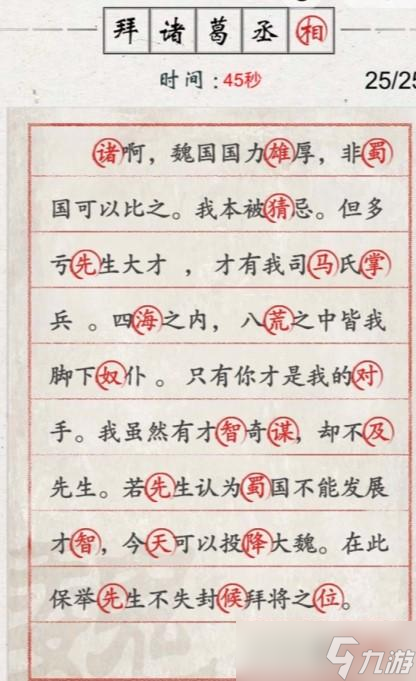 拜诸葛丞相
时间:45秒
25/25
诸啊，魏国国力雄厚，非蜀
国可以比之。我本被猜忌。但多
亏先生大才，才有我司马氏掌
兵。四海之内，八荒之中皆我
脚下奴仆。只有你才是我的对
手。我虽然有才智奇谋，却不及
先生。若先生认为蜀国不能发展
才智，今天可以投降大魏。在此
保举先生不失封候拜将之位。
九游